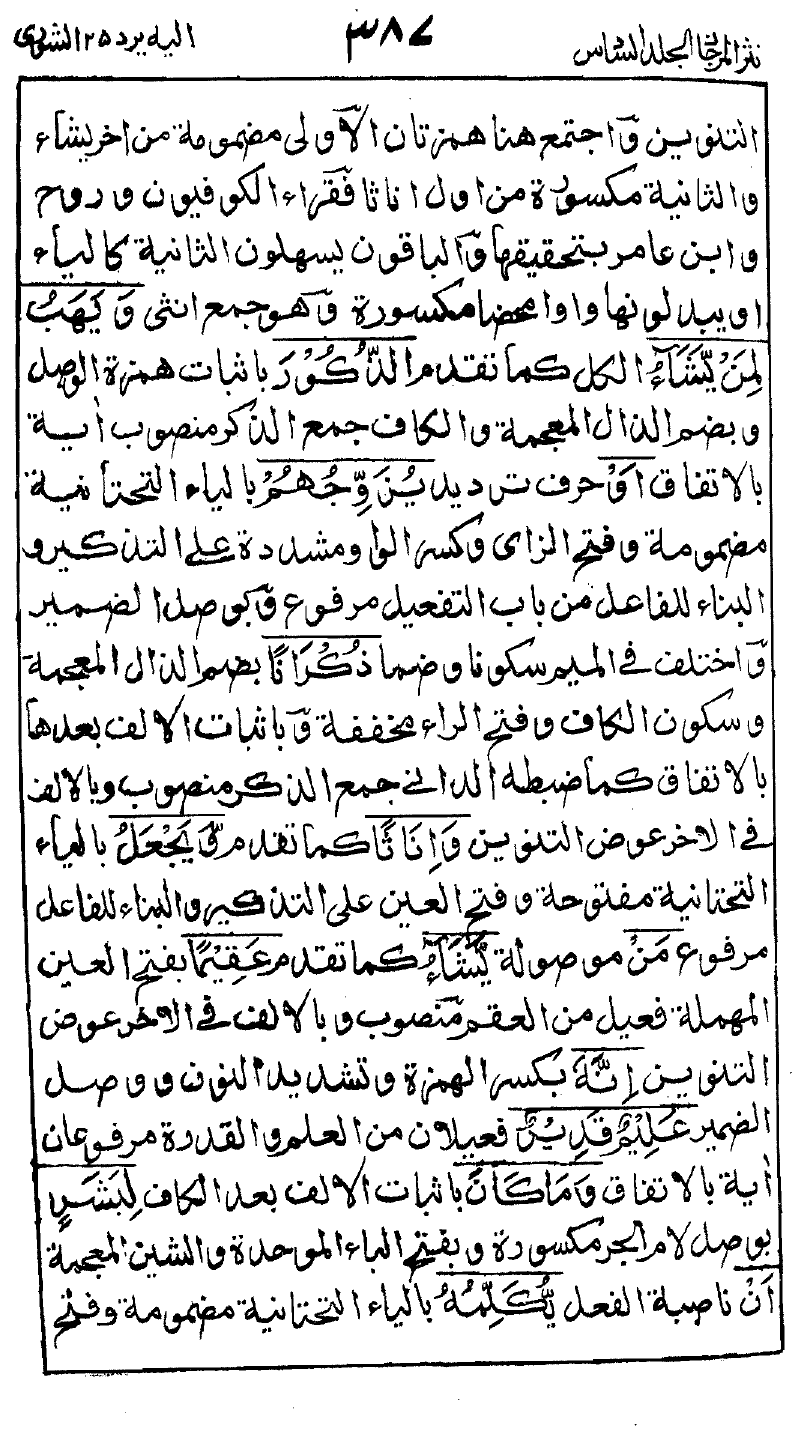 نثر المرجان الجلد السادس ٣٨٧ اليه يرد ٢٥ الشورى
التنوين وٓاجتمع هنا همزتان الاولى مضمومة من اخر يشاء
والثانية مكسورة من اول اناثا فقراء الكوفيون وروح
وابن عامر بتحقيقها وٓالباقون يسهلون الثانية كالياء
اويبدلونها واوا محضا مكسورة وٓهو جمع انثى وَيَهَبُ
لِمَنْ يَّشَآءُ الكل كما تقدم الذُّكُوْرَ باثبات همزة الوصل
وبضم الذال المعجمة والكاف جمع الذكر منصوب اٰية
بالاتفاق اَوْ حرف ترديد يُزَوِّجُهُمْ بالياء التحتانية
مضمومة وفتح الزاى وكسر الواو مشددة على التذكير و
البناء للفاعل من باب التفعيل مرفوع وٓبوصل الضمير
وٓاختلف في الميم سكونا وضما ذُكْرَانًا بضم الذال المعجمة
وسكون الكاف وفتح الراء مخففة وٓباثبات الالف بعدها
بالاتفاق كما ضبطه الداني جمع الذكر منصوب وبالالف
في الاخر عوض التنوين وَاِنَاثًا كما تقدم وَّيَجْعَلُ بالياء
التحتانية مفتوحة وفتح العين على التذكير والبناء للفاعل
مرفوع مَنْ موصولة يَّشَآءُ كما تقدم عَقِيْمًا بفتح العين
المهملة فعيل من العقم منصوب وبالالف في الاخر عوض
التنوين اِنَّهٗ بكسر الهمزة وتشديد النون ووصل
الضمير عَلِيْمٌ قَدِيْرٌ فعيلان من العلم والقدرة مرفوعان
اٰية بالاتفاق وَمَا كَانَ باثبات الالف بعد الكاف لِبَشَرٍ
بوصل لام الجر مكسورة وبفتح الباء الموحدة والشين المعجمة
اَنْ ناصبة الفعل يُّكَلِّمَهُ بالياء التحتانية مضمومة وفتح